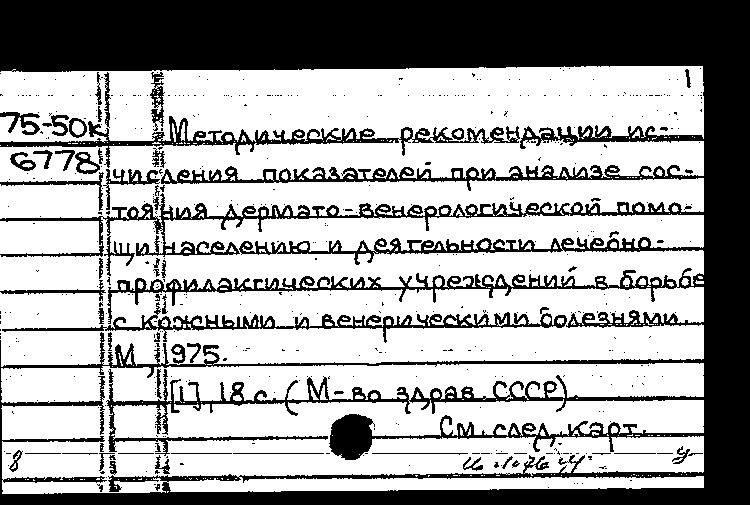 1
75-50к
6778
Методические рекомендации ис-
числения показателей при анализе сос-
тояния дермато-венерологической помо-
щи населению и деятельности лечебно-
профилактических учреждений в борьбе
с кожными и венерическими болезнями.
М, 1975.
[1], 18 с. (М-во здрав. СССР).
См. след. карт.
8
у